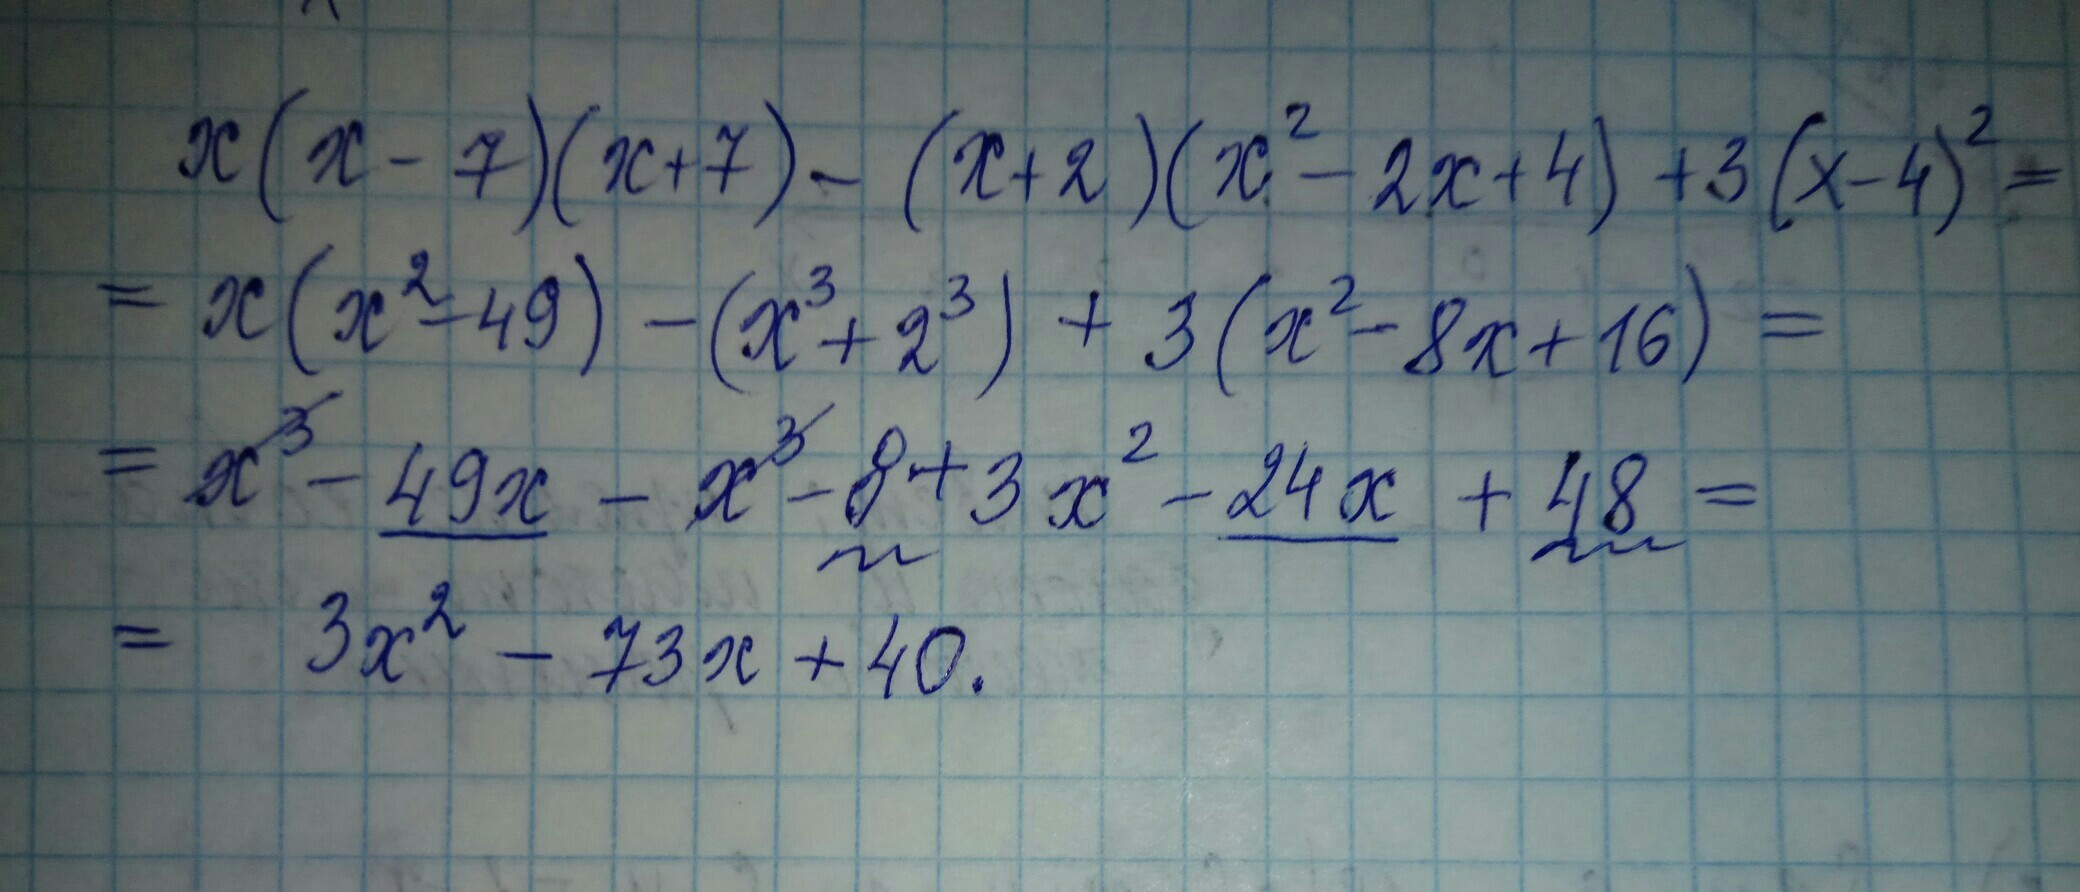 x(x-7)(x+7)-(x+2)(x²-2x+4)+3(x-4)²=
=x(x²-49)-(x³+2³)+3(x²-8x+16)=
=x³-49x-x³-8+3x²-24x+48=
=3x²-73x+40.